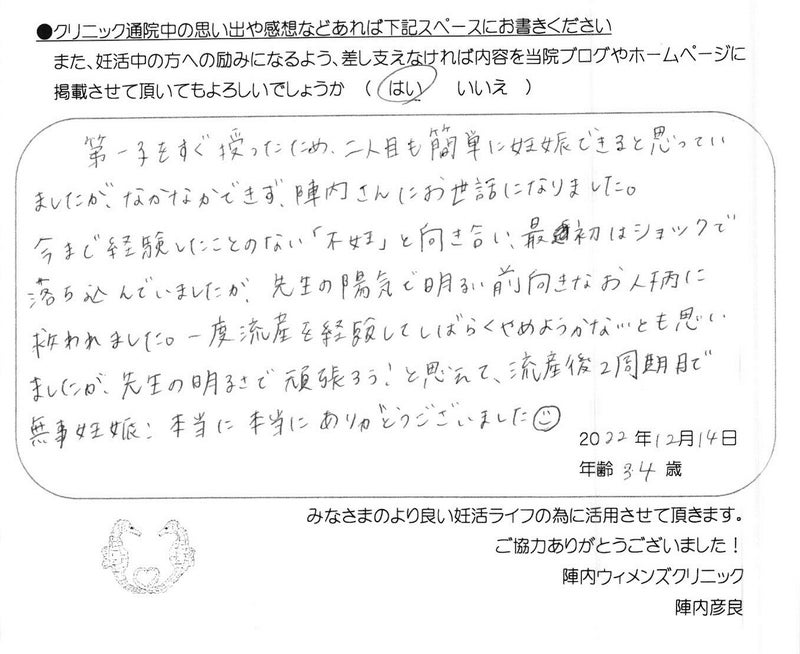 ●クリニック通院中の思い出や感想などあれば下記スペースにお書きください
また、妊活中の方への励みになるよう、差し支えなければ内容を当院ブログやホームページに
掲載させて頂いてもよろしいでしょうか （ はい　　いいえ ）
第一子をすぐ授ったため、二人目も簡単に妊娠できると思ってい
ましたが、なかなかできず、陣内さんにお世話になりました。
今まで経験したことのない「不妊」と向き合い、最初はショックで
落ち込んでいましたが、先生の陽気で明るい前向きなお人柄に
救われました。一度流産を経験してしばらくやめようかな…とも思い
ましたが、先生の明るさで頑張ろう！と思えて、流産後2周期目で
無事妊娠！本当に本当にありがとうございました☺
2022 年 12月 14日
年齢 34 歳
みなさまのより良い妊活ライフの為に活用させて頂きます。
ご協力ありがとうございました！
陣内ウィメンズクリニック
陣内彦良